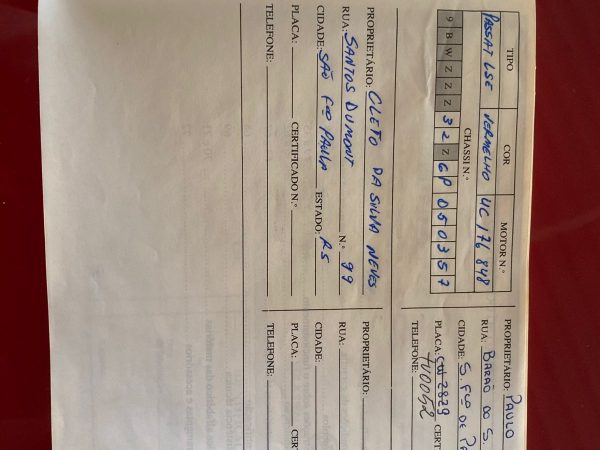 TIPO COR MOTOR N.º
PASSAT LSE VERMELHO UC 176 848
CHASSI N.º
9 B W Z Z Z 3 2 Z G P 0 5 0 3 5 7
PROPRIETÁRIO: CLETO DA SILVA NEVES
RUA: SANTOS DUMONT N.º 99
CIDADE: SÃO FCO PAULA ESTADO: RS
PLACA: CERTIFICADO N.º
TELEFONE:
PROPRIETÁRIO: PAULO
RUA: BARÃO DO S.
CIDADE: S. FCO DE PA
PLACA: 2829 CERT
TELEFONE:
PROPRIETÁRIO:
RUA:
CIDADE:
PLACA: CER
TELEFONE: